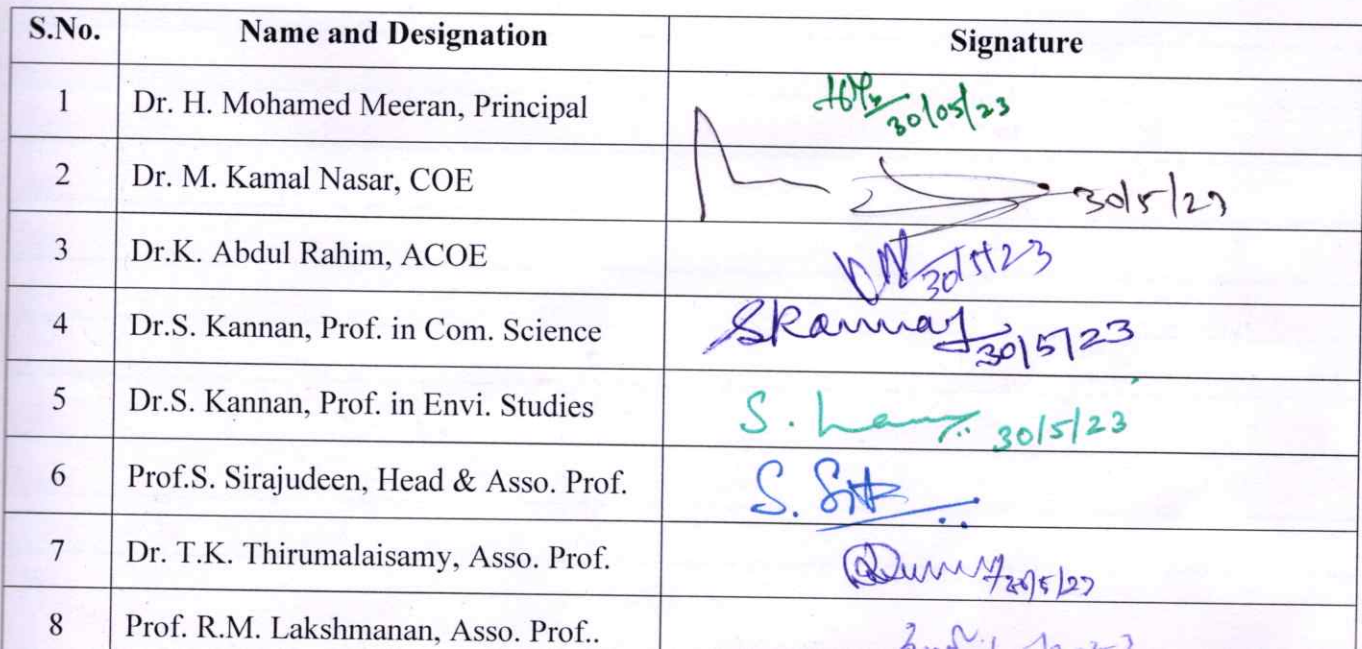 S.No. Name and Designation Signature
1 Dr. H. Mohamed Meeran, Principal 30/05/23
2 Dr. M. Kamal Nasar, COE 30/5/23
3 Dr.K. Abdul Rahim, ACOE 30/5/23
4 Dr.S. Kannan, Prof. in Com. Science SKannan 30/5/23
5 Dr.S. Kannan, Prof. in Envi. Studies S. 30/5/23
6 Prof.S. Sirajudeen, Head & Asso. Prof. S.
7 Dr. T.K. Thirumalaisamy, Asso. Prof. 30/5/23
8 Prof. R.M. Lakshmanan, Asso. Prof..